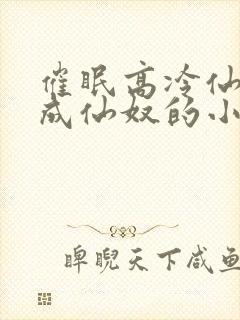 催眠高冷仙
成仙奴的小
睥睨天下咸鱼